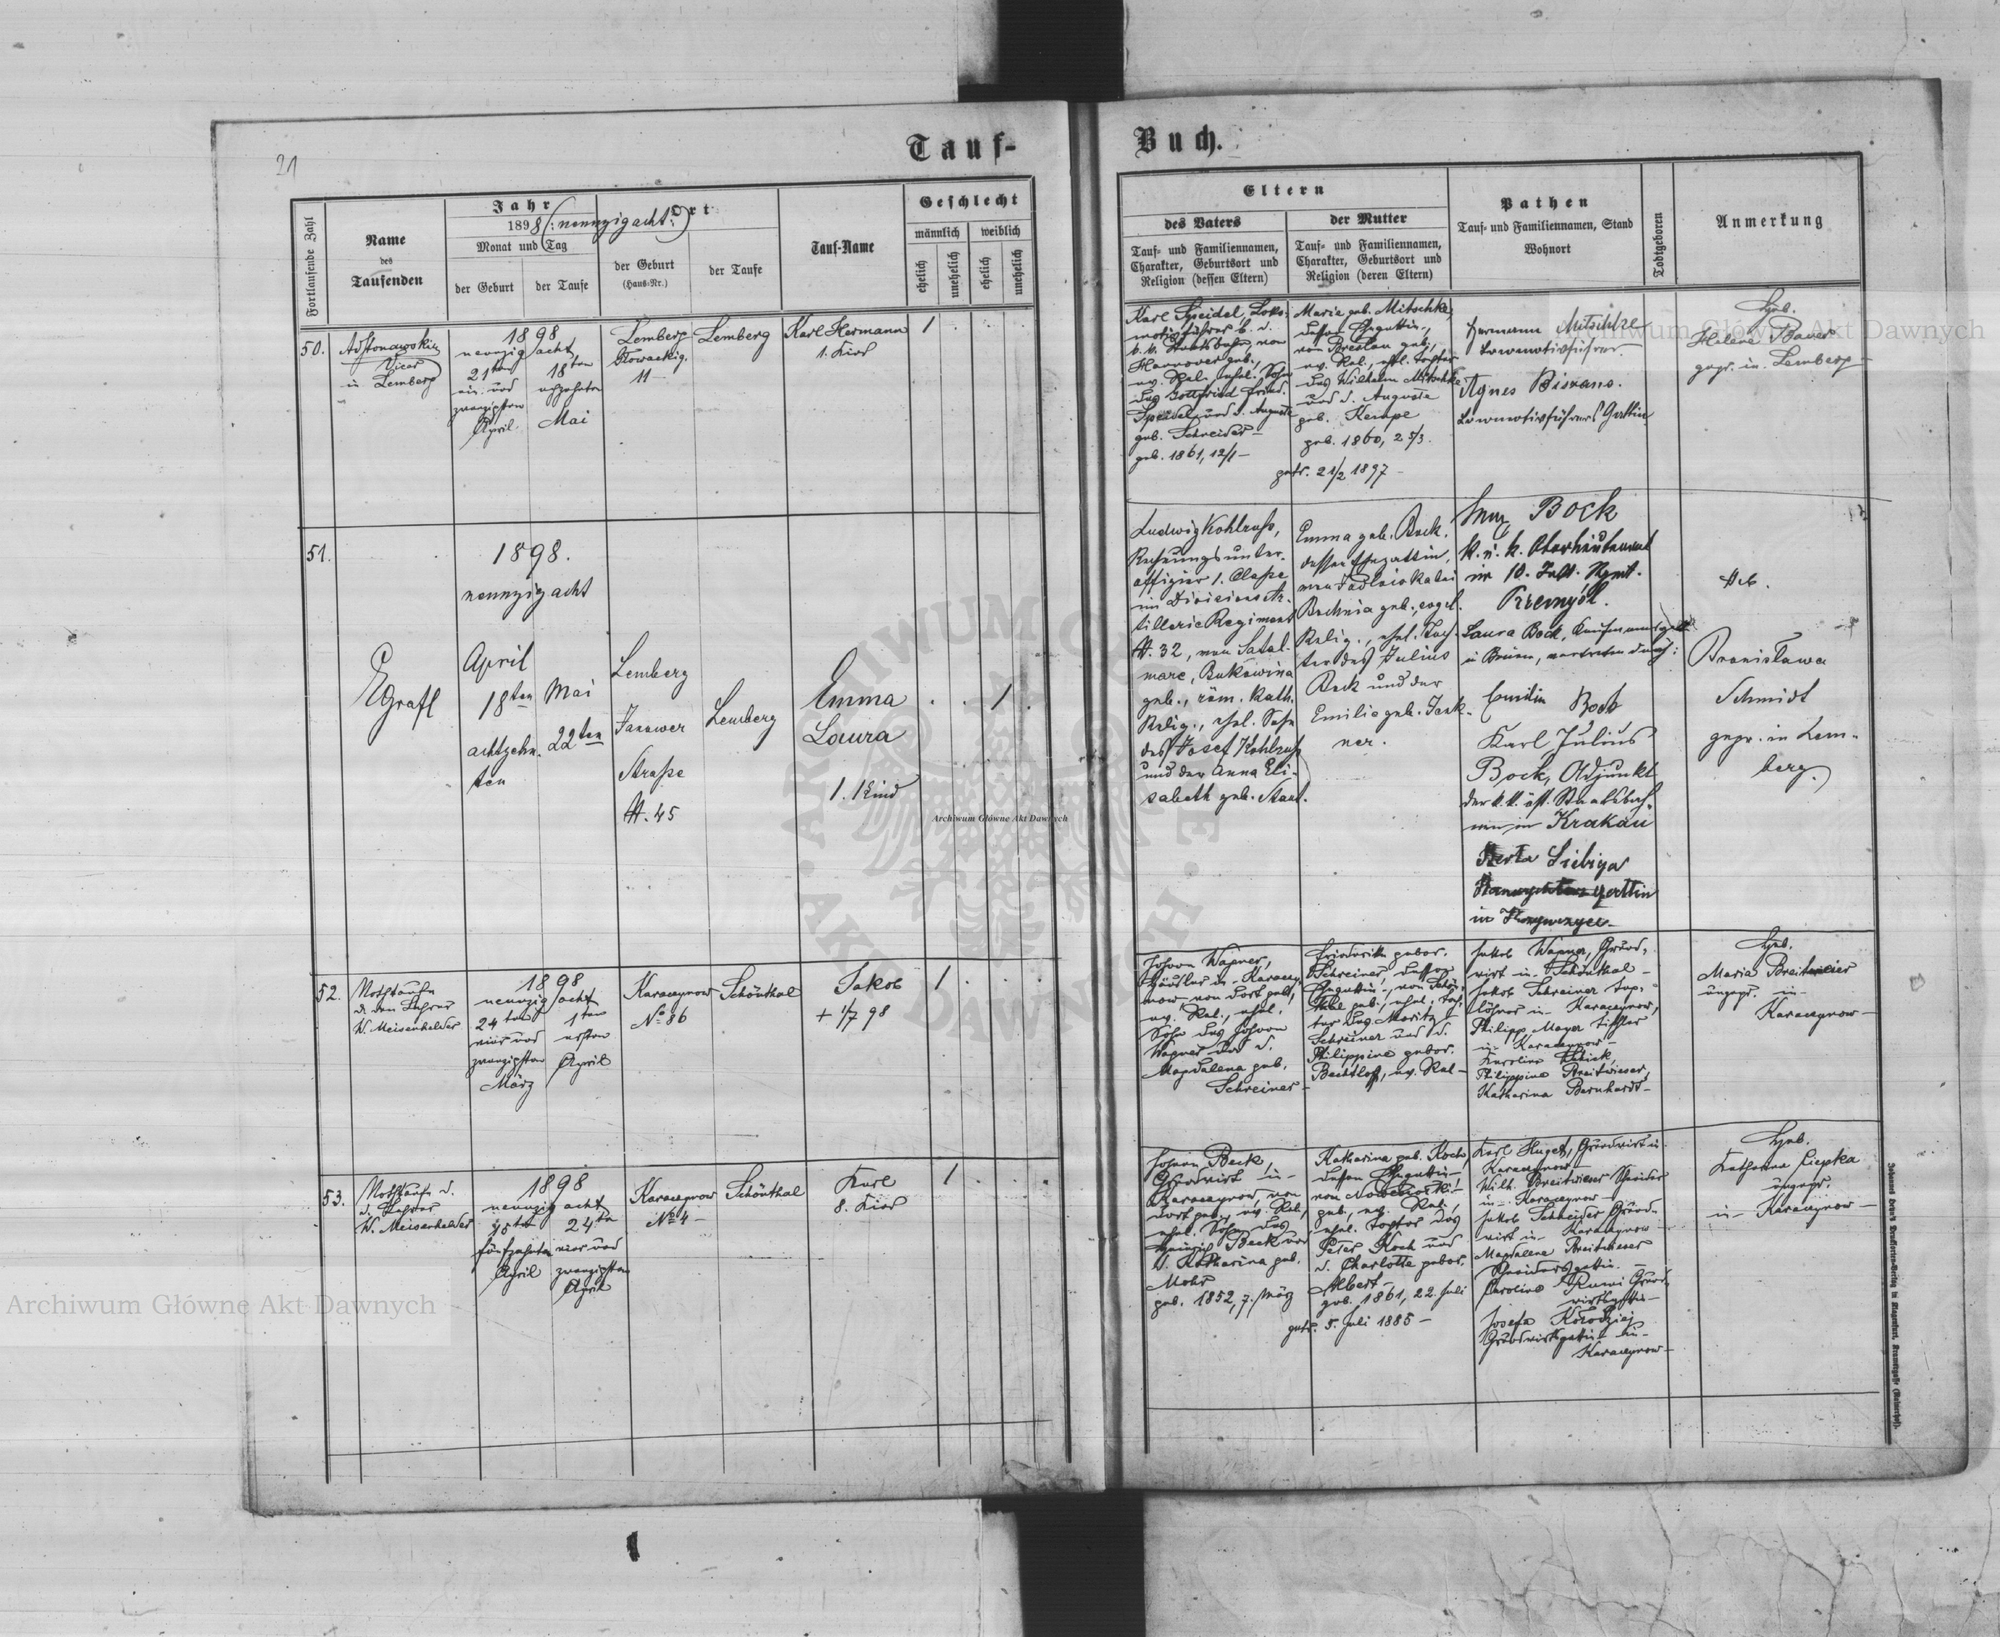 21
Tauf-
Buch.
Fortlaufende Zahl
Name
des
Taufenden
Jahr
1898 (: nennzigacht :)
Monat und Tag
der Geburt
der Taufe
Ort
der Geburt
(Haus-Nr.)
der Taufe
Tauf-Name
Geschlecht
männlich
weiblich
ehelich
unehelich
ehelich
unehelich
Eltern
des Vaters
Tauf- und Familiennamen,
Charakter, Geburtsort und
Religion (dessen Eltern)
der Mutter
Tauf- und Familiennamen,
Charakter, Geburtsort und
Religion (deren Eltern)
Pathen
Tauf- und Familiennamen, Stand
Wohnort
Todtgeboren
Anmerkung
50.
Vicar
in Lemberg
1898
neunzig acht
21ten
ein und
zwanzigsten
April
18ten
achtzehnten
Mai
Lemberg
11
Lemberg
Karl Hermann
1. Kind
1
Karl Speidel, Loko-
motivführer b. d.
k. k. Staatsbahn, von
Hannover geb.,
ev. Rel., ehel. Sohn
des Gottfried Fried.
Speidel und d. Auguste
geb. Schreider
geb. 1861, 12/1
Maria geb. Mitschke,
dessen Ehegattin,
von Breslau geb.,
ev. Rel., ehel. Tochter
des Wilhelm Mitschke
und d. Auguste
geb. Kempe
geb. 1860, 25/3.
getr. 21/2 1897
Hermann Mitschke
Locomotivführer
Agnes Biskans.
Locomotivführers Gattin
Heb.
Helene Bauer
gepr. in Lemberg
51.
1898.
nennzigacht
Egrafl
April
18ten
achtzehn-
ten
Mai
22ten
Lemberg
Janower
Straße
N. 45
Lemberg
Emma
Laura
1. Kind
1
Ludwig Kohlruß,
Rechnungsunter-
offizier 1. Classe
im Divisions Ar-
tillerie Regiment
N. 32, von Satul-
mare, Bukowina
geb., röm. kath.
Relig., ehel. Sohn
des Josef Kohlruß
und der Anna Eli-
sabeth geb. Staul.
Emma geb. Bock,
dessen Ehegattin,
von bei
Bochnia geb., evgel.
Relig., ehel. Toch-
ter des Julius
Bock und der
Emilie geb. Jenk-
ner.
Bock
k. u. k. Oberleutenant
im 10. Inft. Rgmt.
Przemyśl.
Laura Bock, Kaufmannsgatt.
in Brünn, vertreten durch:
Emilie Bock
Karl Julius
Bock, Adjunkt
der k. k. öst. Staatsbah-
nen in Krakau
Berta Liebiga
gattin
in
Heb.
Bronisława
Schmidt
gepr. in Lem-
berg.
52.
Nothtaufe
d. den Lehrer
W. Meisenhelder
1898
neunzig acht
24ten
vier und
zwanzigsten
März
1ten
ersten
April
Karaczynow
No 86
Schönthal
Jakob
+ 1/7 98
1
Johann Wagner,
Häusler in Karaczy-
now von dort geb.,
ev. Rel., ehel.
Sohn des Johann
Wagner und d.
Magdalena geb.
Schreiner
Friederike gebor.
Schreiner, dessen
Ehegattin, von Schön-
thal geb., ehel. Toch-
ter des Moritz
Schreiner und d.
Philippine gebor.
Bechtloff, ev. Rel
Jakob Wagner, Grund-
wirt in Schönthal
Jakob Schreiner Tag-
löhner in Karaczynow,
Philipp Mayer Tischler
in Karaczynow
Karoline Schick,
Philippine Breitwieser,
Katharina Bernhardt
Heb.
Maria Breitwieser
ungepr. in
Karaczynow
53.
Nothtaufe d.
d. Lehrer
W. Meisenhelder
1898
neunzig acht
15ten
fünfzehnten
April
24ten
vier und
zwanzigsten
April
Karaczynow
No 4
Schönthal
Karl
8. Kind
1
Johann Beck,
Grundwirt in
Karaczynow, von
dort geb., ev. Rel.,
ehel. Sohn des
Heinrich Beck und
d. Katharina geb.
Mohr
geb. 1852, 7. März
Katharina geb. Koch,
dessen Ehegattin
von
geb., ev. Rel.,
ehel. Tochter des
Peter Koch und
d. Charlotte gebor.
Albert
geb. 1861, 22. Juli
getr. 5. Juli 1885
Karl Huget, Grundwirt in
Karaczynow
Wilh. Breitwieser Schneider
in Karaczynow
Jakob Schneider Grund-
wirt in Karaczynow
Magdalena Breitwieser
Schneidersgattin
Caroline Grund-
wirtsgattin
Josefa Kołodziej
Grundwirtsgattin in
Karaczynow
Heb.
Katharina Ciepka
ungepr.
in Karaczynow
Archiwum Główne Akt Dawnych
Archiwum Główne Akt Dawnych
Archiwum Główne Akt Dawnych
ARCHIWUM GŁÓWNE AKT DAWNYCH